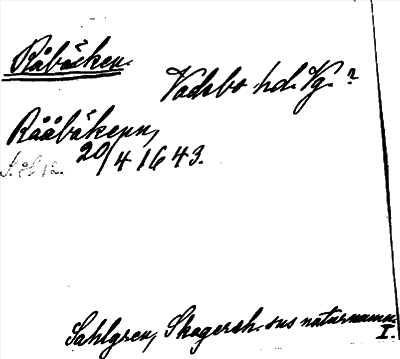 Råbäcken.
Vadsbo hd. Vg. ?
Rååbäkenn,
20/4 1643.
Sahlgren, Skagersh.-sns naturnamn
I.